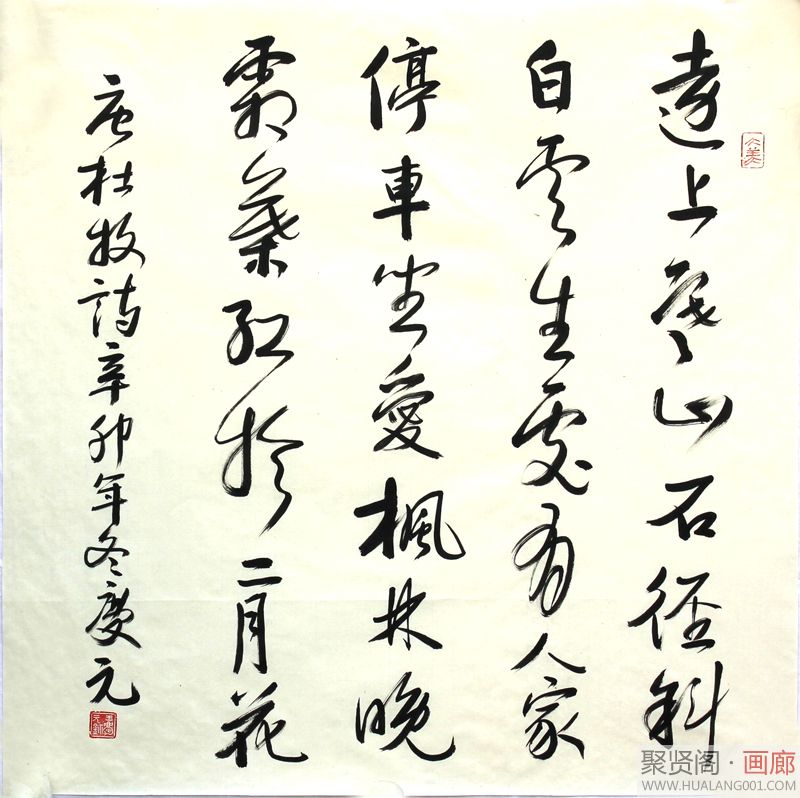 遠上寒山石径斜
白雲生處有人家
停車坐愛楓林晚
霜葉紅於二月花
唐杜牧詩辛卯年冬慶元
聚贤阁·画廊
WWW.HUALANG001.COM